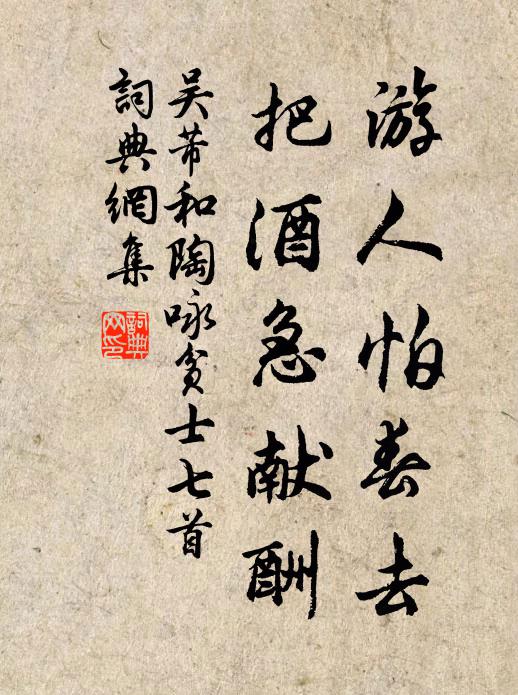 游人怕春去
把酒急献酬
吴芾和陶咏贫士七首
詞典網集
詞典
网印